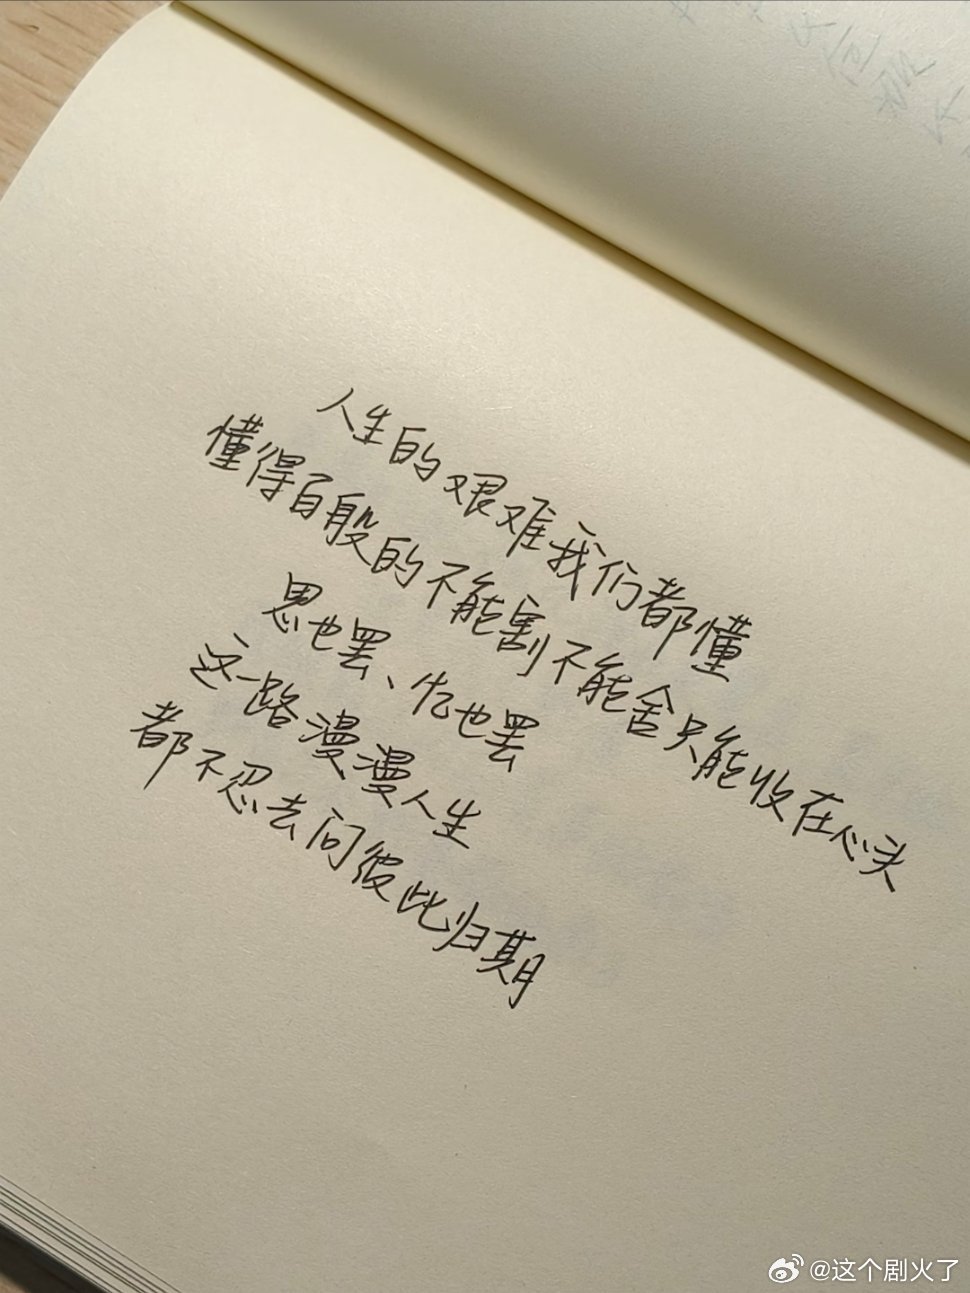 人生的艰难我们都懂
懂得百般的不能割不能舍只能收在心头
思也罢、忆也罢
这一路漫漫人生
都不忍去问彼此归期
@这个剧火了